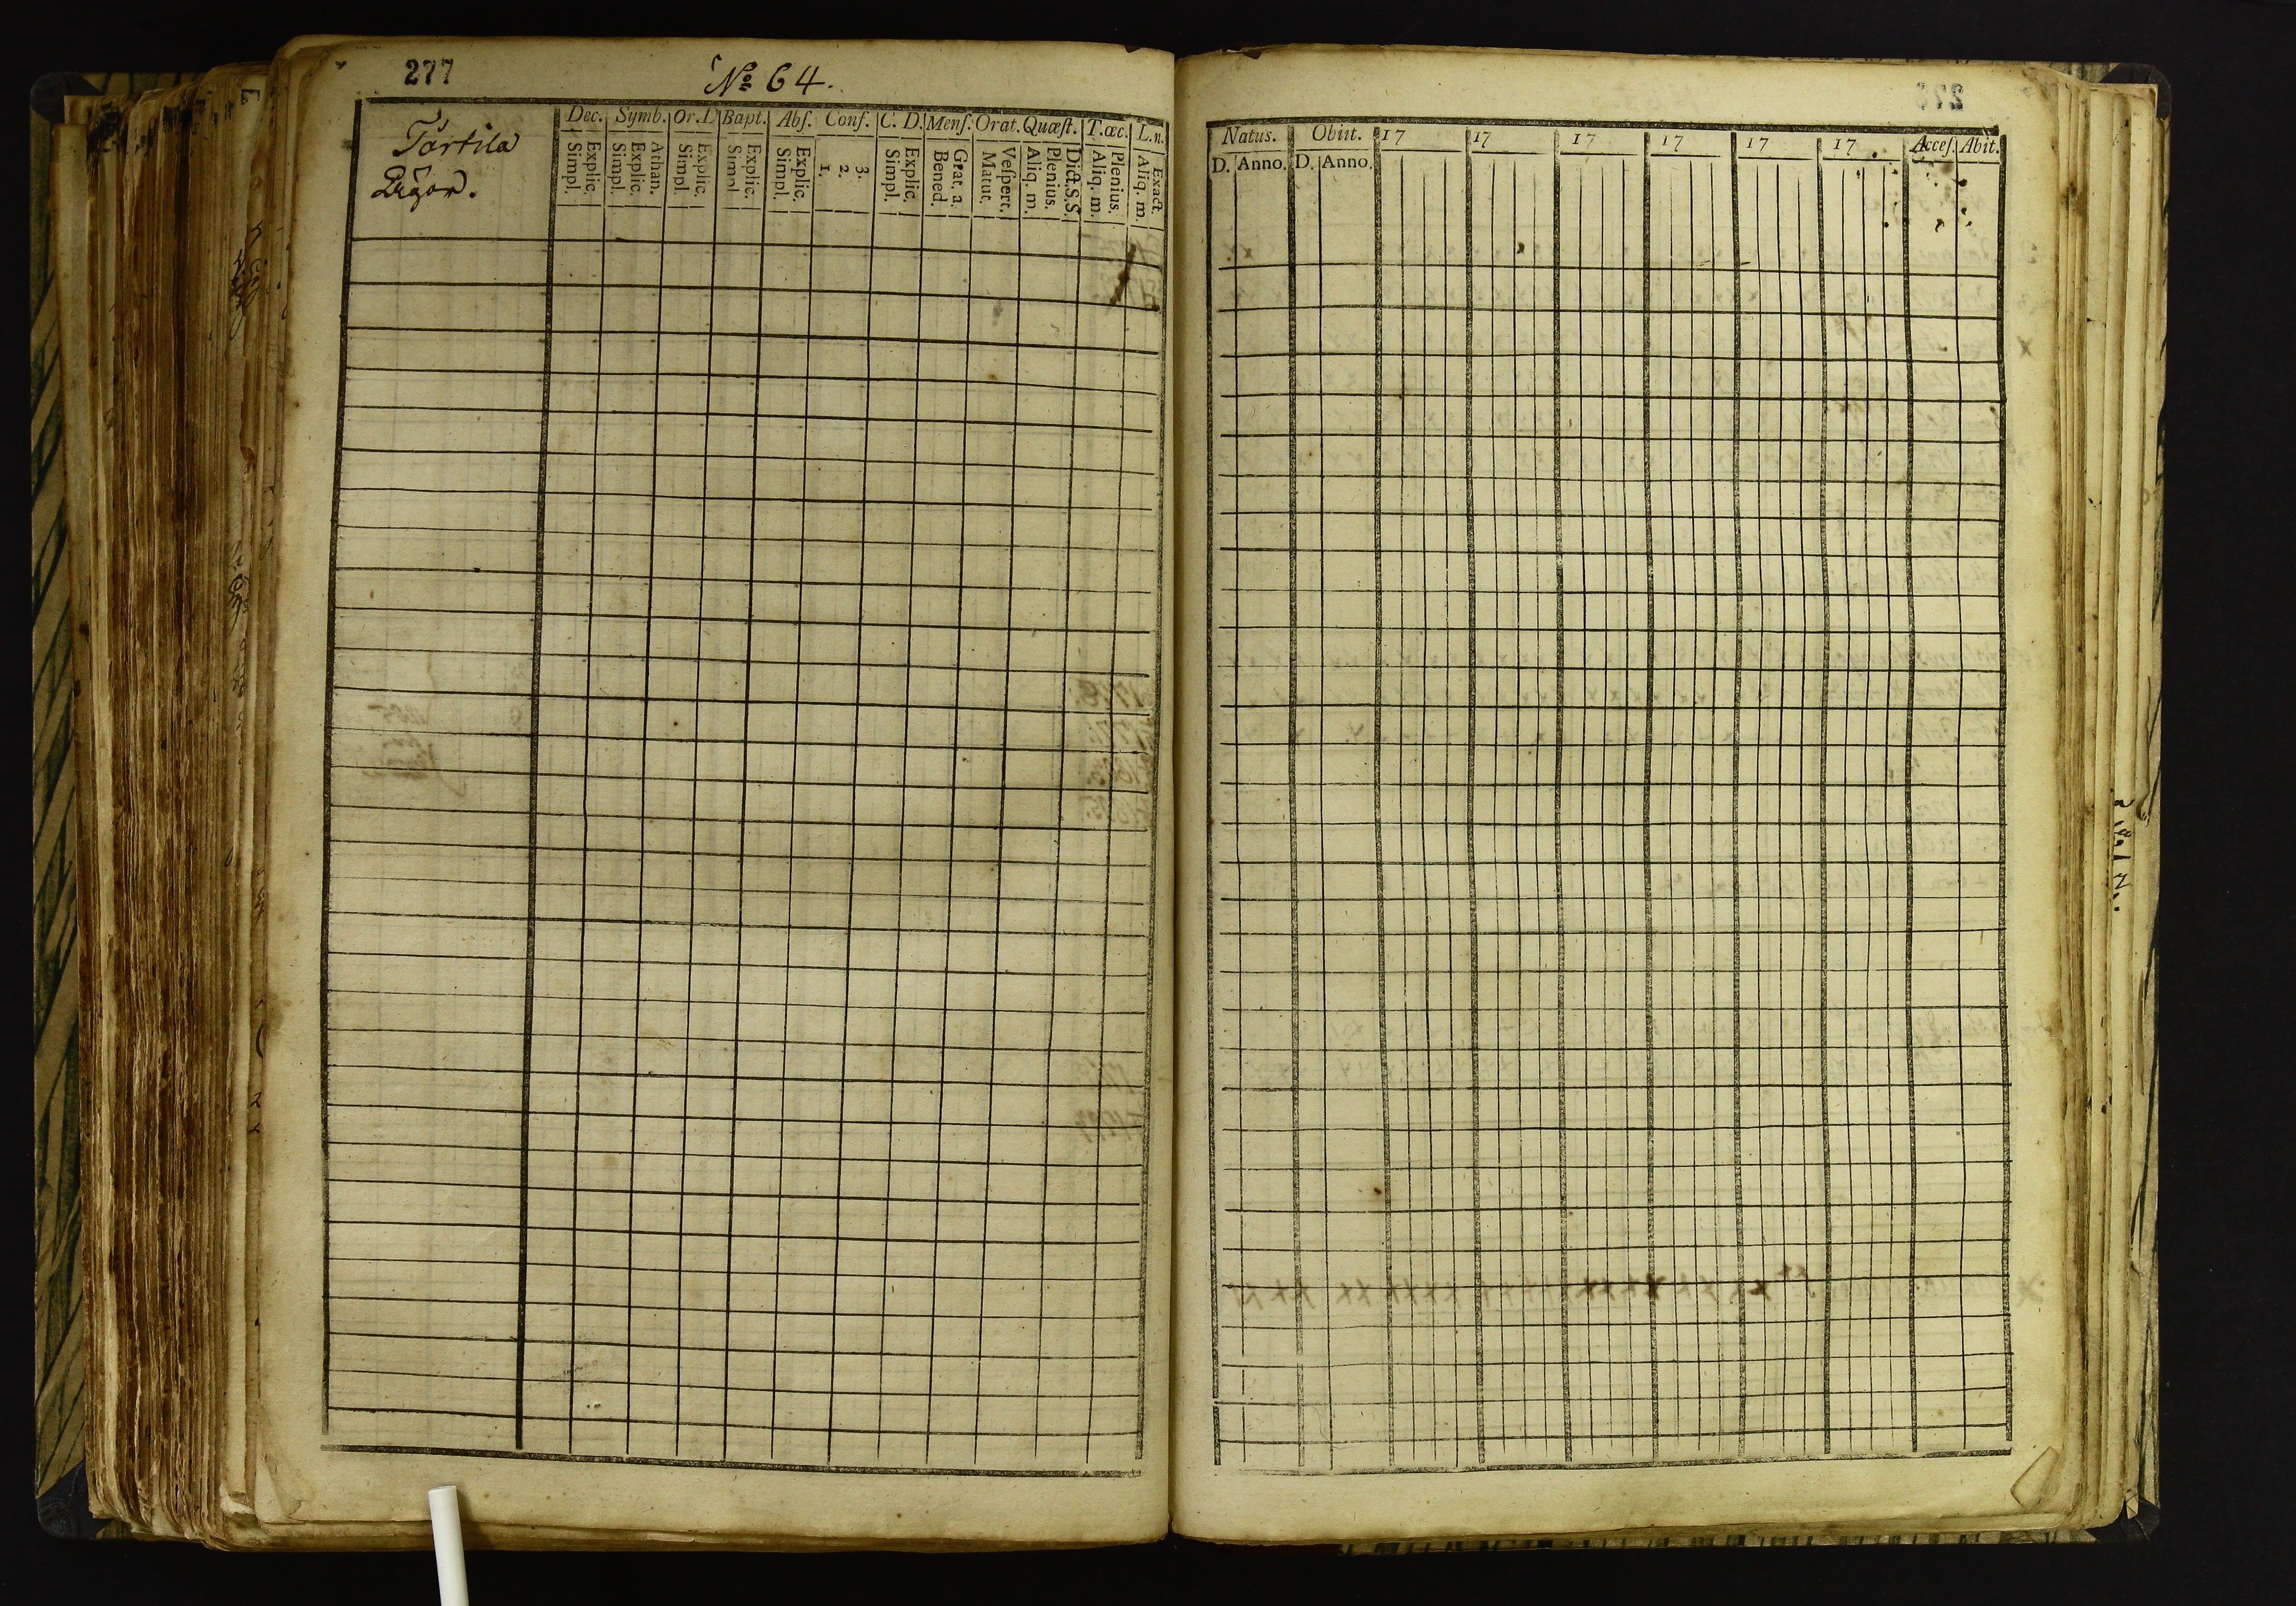 277
No 64.
Tårtila
Lägor.
Dec. Symb. Or. D Bapt. Abſ. Conf. C. D. Menſ. Orat. Quæſt. T. œc. L. n.
Explic. Simpl.
Athan. Explic. Simpl.
Explic. Simpl.
Explic. Simpl.
Explic. Simpl.
3. 2. 1.
Explic. Simpl.
Grat. a. Bened.
Veſpert. Matut.
Dict. S. S. Plenius. Aliq. m.
Plenius. Aliq. m.
Exact. Aliq. m.
Natus. Obiit. 17 17 17 17 17 17 Acceſ. Abit.
D. Anno. D. Anno.